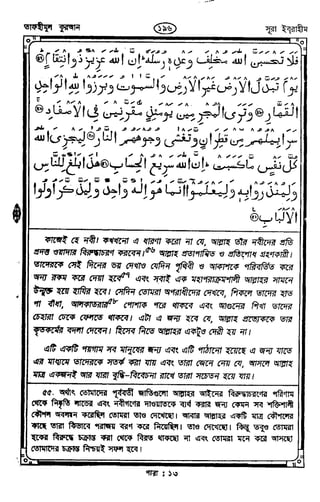 তাফহীমুল কুরআন
১৯৬
সূরা ইবরাহীম
فَلَا تَحْسَبَنَّ اللّٰهَ مُخْلِفَ وَعْدِهٖ رُسُلَهٗ ؕ اِنَّ اللّٰهَ عَزِيْزٌ ذُو انْتِقَامٍ
يَوْمَ تُبَدَّلُ الْاَرْضُ غَيْرَ الْاَرْضِ وَالسَّمٰوٰتُ وَبَرَزُوْا لِلّٰهِ الْوَاحِدِ
الْقَهَّارِ وَتَرَى الْمُجْرِمِيْنَ يَوْمَئِذٍ مُّقَرَّنِيْنَ فِى الْاَصْفَادِ
سَرَابِيْلُهُمْ مِّنْ قَطِرَانٍ وَّتَغْشٰى وُجُوْهَهُمُ النَّارُ لِيَجْزِىَ اللّٰهُ
كُلَّ نَفْسٍ مَّا كَسَبَتْ ؕ اِنَّ اللّٰهَ سَرِيْعُ الْحِسَابِ هٰذَا بَلٰغٌ لِّلنَّاسِ
وَلِيُنْذَرُوْا بِهٖ وَلِيَعْلَمُوْۤا اَنَّمَا هُوَ اِلٰهٌ وَّاحِدٌ وَّلِيَذَّكَّرَ اُولُوا
الْاَلْبَابِ
কাজেই হে নবী! কখখনো এ ধারণা করো না যে, আল্লাহ তাঁর নবীদের প্রতি
প্রদত্ত ওয়াদার বিরুদ্ধাচরণ করবেন। আল্লাহ প্রতাপান্বিত ও প্রতিশোধ গ্রহণকারী।
তাদেরকে সেই দিনের ভয় দেখাও যেদিন পৃথিবী ও আকাশকে পরিবর্তিত করে
অন্য রকম করে দেয়া হবে এবং সবাই এক মহাপরাক্রমশালী আল্লাহর সামনে
উন্মুক্ত হয়ে হাযির হবে। সেদিন তোমরা অপরাধীদের দেখবে, শিকলে তাদের হাত
পা বাঁধা, আলকাতরার পোশাক পরে থাকবে এবং আগুনের শিখা তাদের
চেহারা ঢেকে ফেলতে থাকবে। এটা এ জন্য হবে যে, আল্লাহ প্রত্যেককে তার
কৃতকর্মের বদলা দেবেন। হিসেব নিতে আল্লাহর একটুও দেরী হয় না।
এটি একটি পয়গাম সব মানুষের জন্য এবং এটি পাঠানো হয়েছে এ জন্য যাতে
এর মাধ্যমে তাদেরকে সতর্ক করা যায় এবং তারা জেনে নেয় যে, আসলে আল্লাহ
মাত্র একজনই আর যারা বুদ্ধি-বিবেচনা রাখে তারা সচেতন হয়ে যায়।
৫৫. অর্থাৎ তোমাদের পূর্ববর্তী জাতিগুলো আল্লাহর আইনের বিরুদ্ধাচরণের পরিণাম
থেকে নিষ্কৃতি লাভের এবং নবীগণের দাওয়াতকে ব্যর্থ করার জন্য কেমন সব শক্তিশালী
কৌশল অবলম্বন করেছিল তোমরা তাও দেখেছো। আবার আল্লাহর একটি মাত্র কৌশলের
কাছে তারা কিভাবে পরাজয় বরণ করে নিয়েছিল। তাও দেখেছো। কিন্তু তবুও তোমরা
হকের বিরুদ্ধে চক্রান্ত করা থেকে বিরত থাকছো না এবং তোমরা মনে করে আসছো
তোমাদের চক্রান্ত নিশ্চয়ই সফল হবে।
পারা : ১৩